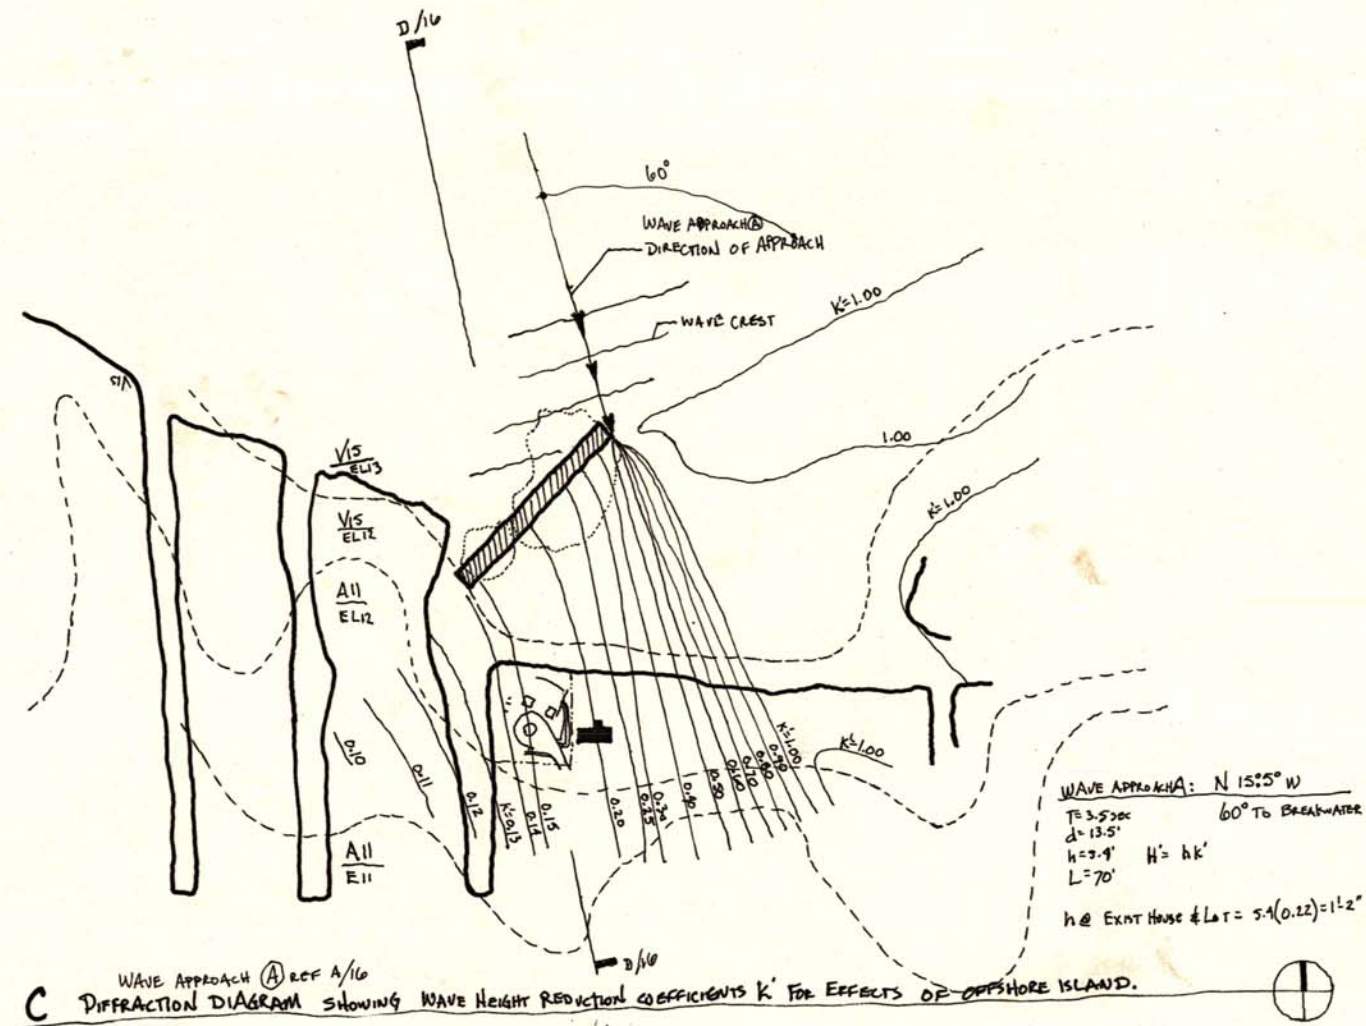 D/16
60°
WAVE APPROACH Ⓐ
DIRECTION OF APPROACH
K'=1.00
WAVE CREST
1.00
K'=1.00
V15
V15
EL13
V15
EL12
A11
EL12
0.10
0.11
0.12
K'=0.13
0.14
0.15
0.20
0.25
0.30
0.40
0.50
0.60
0.70
0.80
0.90
K'=1.00
K'=1.00
A11
E11
WAVE APPROACH A: N 15.5° W
T=3.5 sec 60° TO BREAKWATER
d=13.5'
H'= hk'
L=70'
h @ EXIST HOUSE & LOT = 5.4(0.22)=1'-2"
D/16
WAVE APPROACH Ⓐ REF A/16
C DIFFRACTION DIAGRAM SHOWING WAVE HEIGHT REDUCTION COEFFICIENTS K' FOR EFFECTS OF OFFSHORE ISLAND.